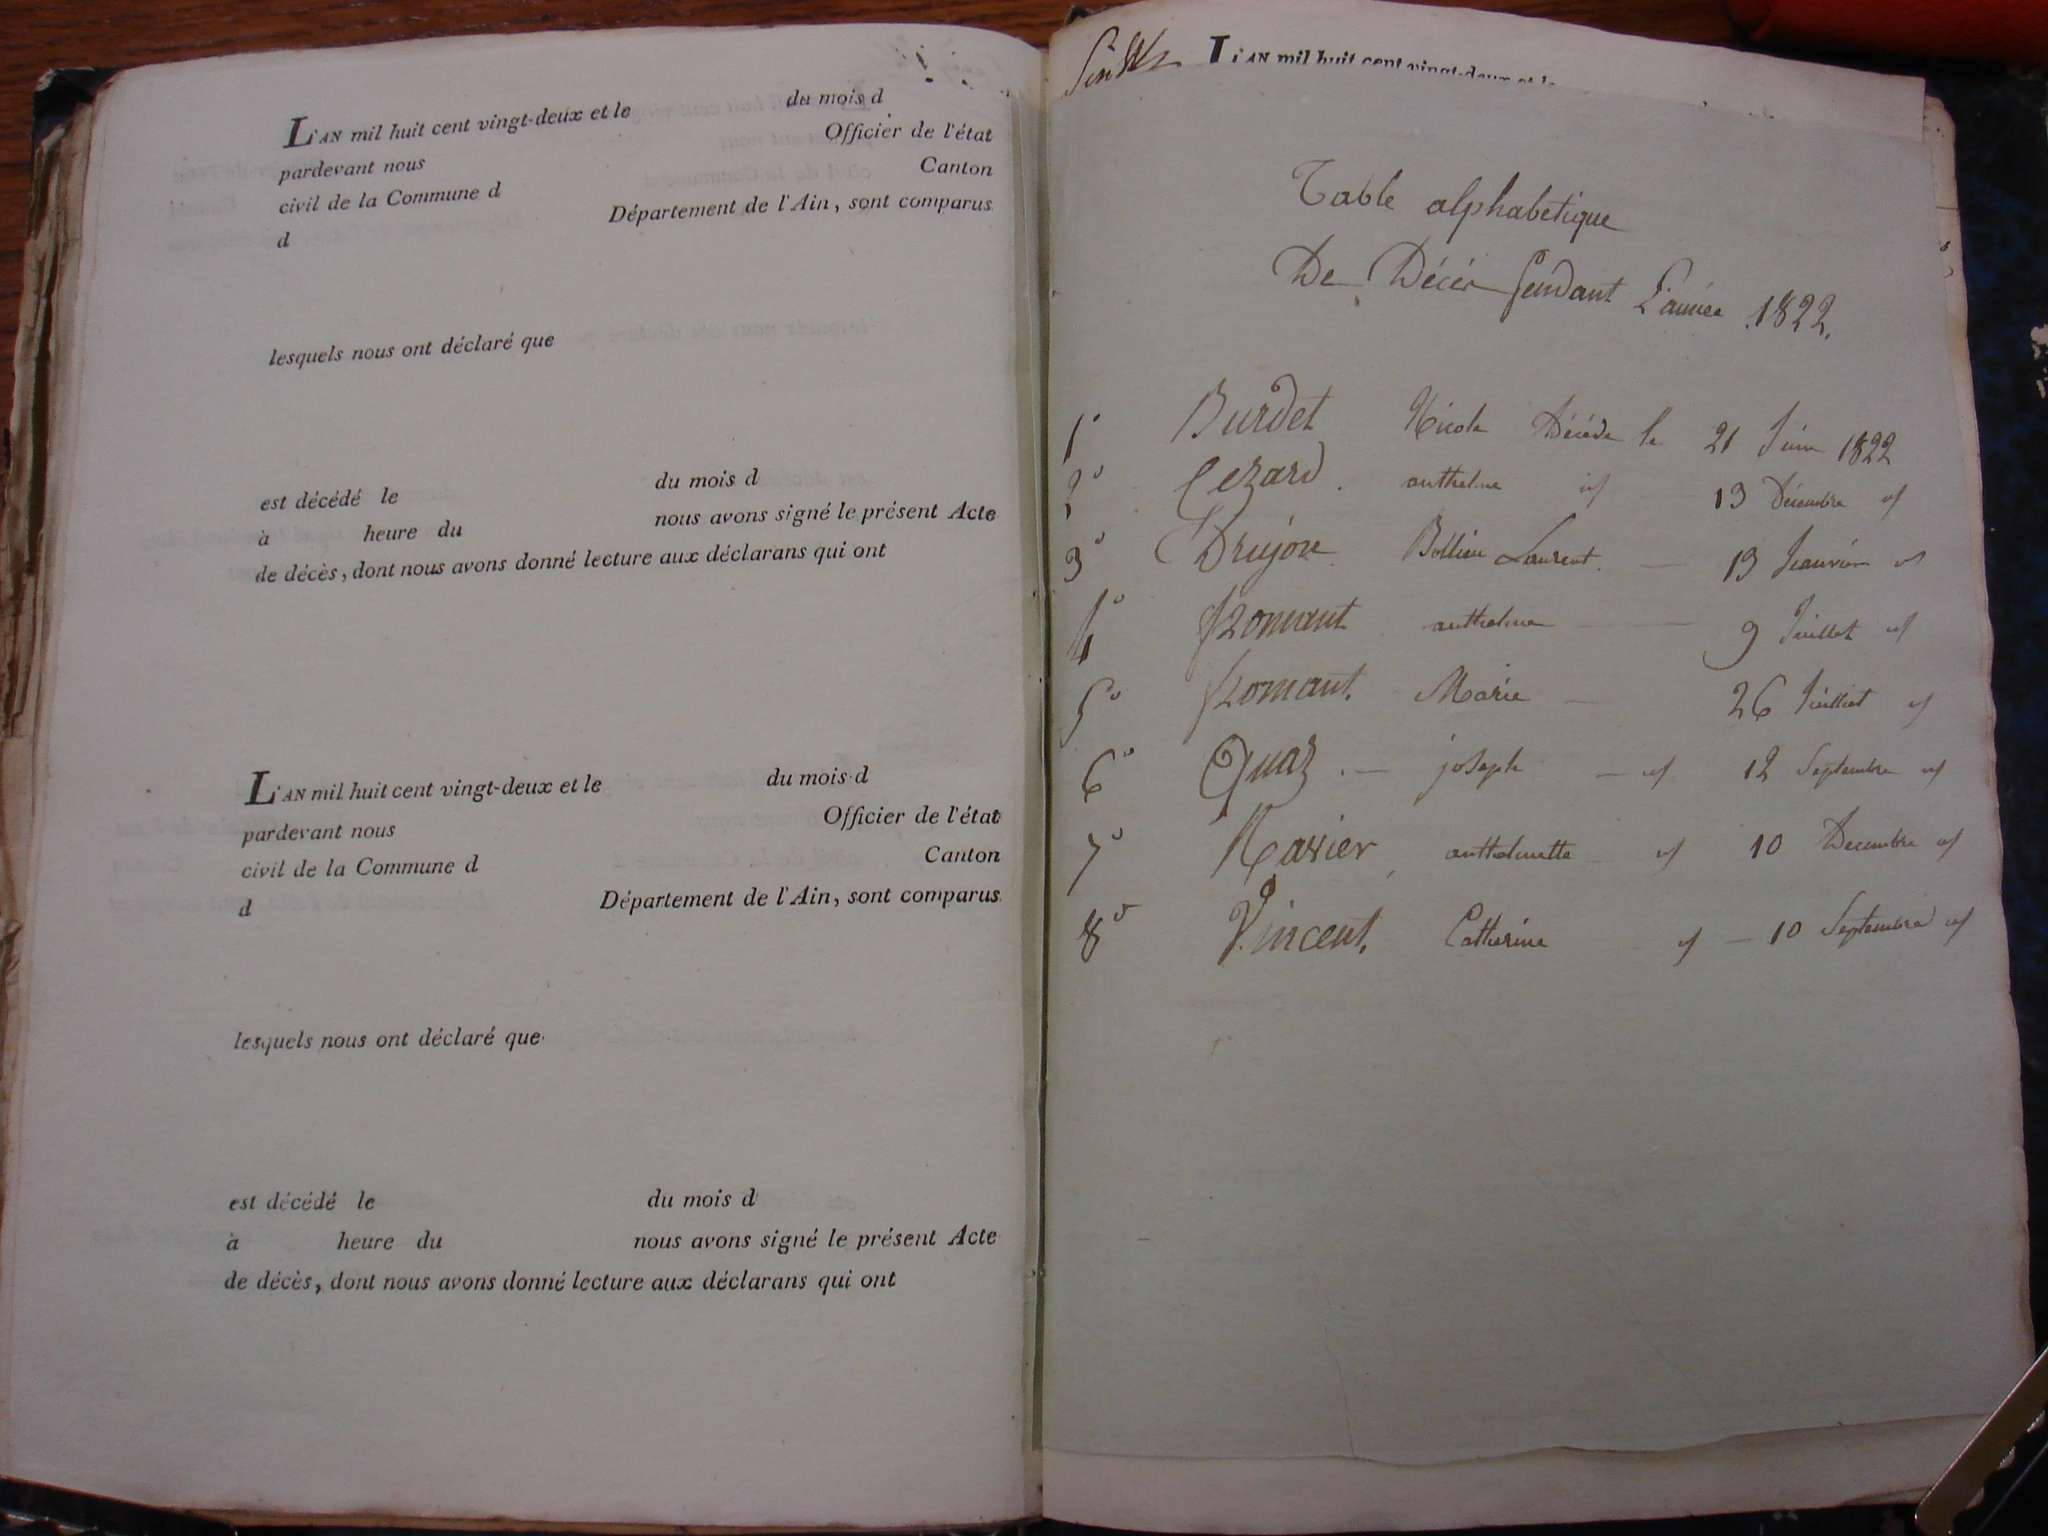 L'AN mil huit cent vingt-deux et le du mois d
pardevant nous Officier de l'état
civil de la Commune d Canton
d Département de l'Ain, sont comparus
lesquels nous ont déclaré que
est décédé le du mois d
à heure du nous avons signé le présent Acte
de décès, dont nous avons donné lecture aux déclarans qui ont
L'AN mil huit cent vingt-deux et le du mois d
pardevant nous Officier de l'état
civil de la Commune d Canton
d Département de l'Ain, sont comparus
lesquels nous ont déclaré que
est décédé le du mois d
à heure du nous avons signé le présent Acte
de décès, dont nous avons donné lecture aux déclarans qui ont
L'AN mil huit cent vingt-deux et le
Table alphabetique
De Décés pendant L'année 1822.
1° Burdet Nicole Décédé le 21 Juin 1822
2° Cezard. anthelme id 13 Décembre id
3° Drujon Bollieu Laurent. — 13 Jeanvier id
4° fromant anthelme — 9 Juillet id
5° fromant. Marie — 26 Juilliet id
6° Quaz . — joseph — id 12 Septembre id
7° Ravier anthelmette — id 10 Decembre id
8° Vincent. Catherine id — 10 Septembre id